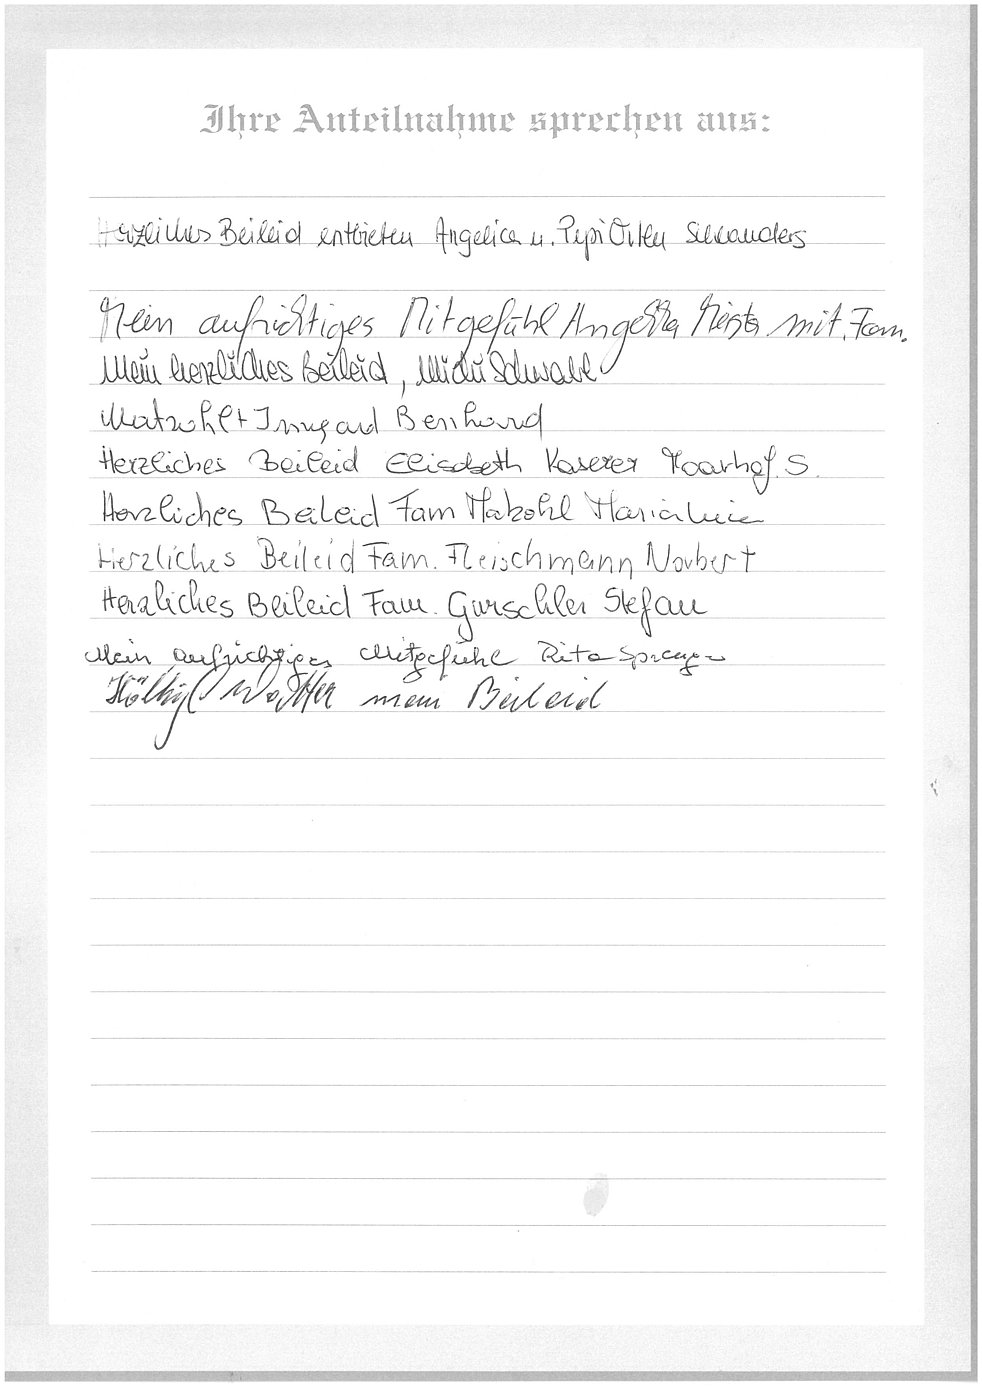 Ihre Anteilnahme sprechen aus:
Herzliches Beileid entbieten Angelica u. Pepi Ortler Schlanders
Mein aufrichtiges Mitgefühl Angelika Meister mit. Fam.
Mein herzliches Beileid, Michi Schwabl
Matzohl + Irmgard Bernhard
Herzliches Beileid Elisabeth Kaserer Moarhof. S.
Herzliches Beileid Fam Matzohl Marialuise
Herzliches Beileid Fam. Fleischmann Norbert
Herzliches Beileid Fam. Gurschler Stefan
Mein aufrichtiges Mitgefühl Rita
Walter mein Beileid